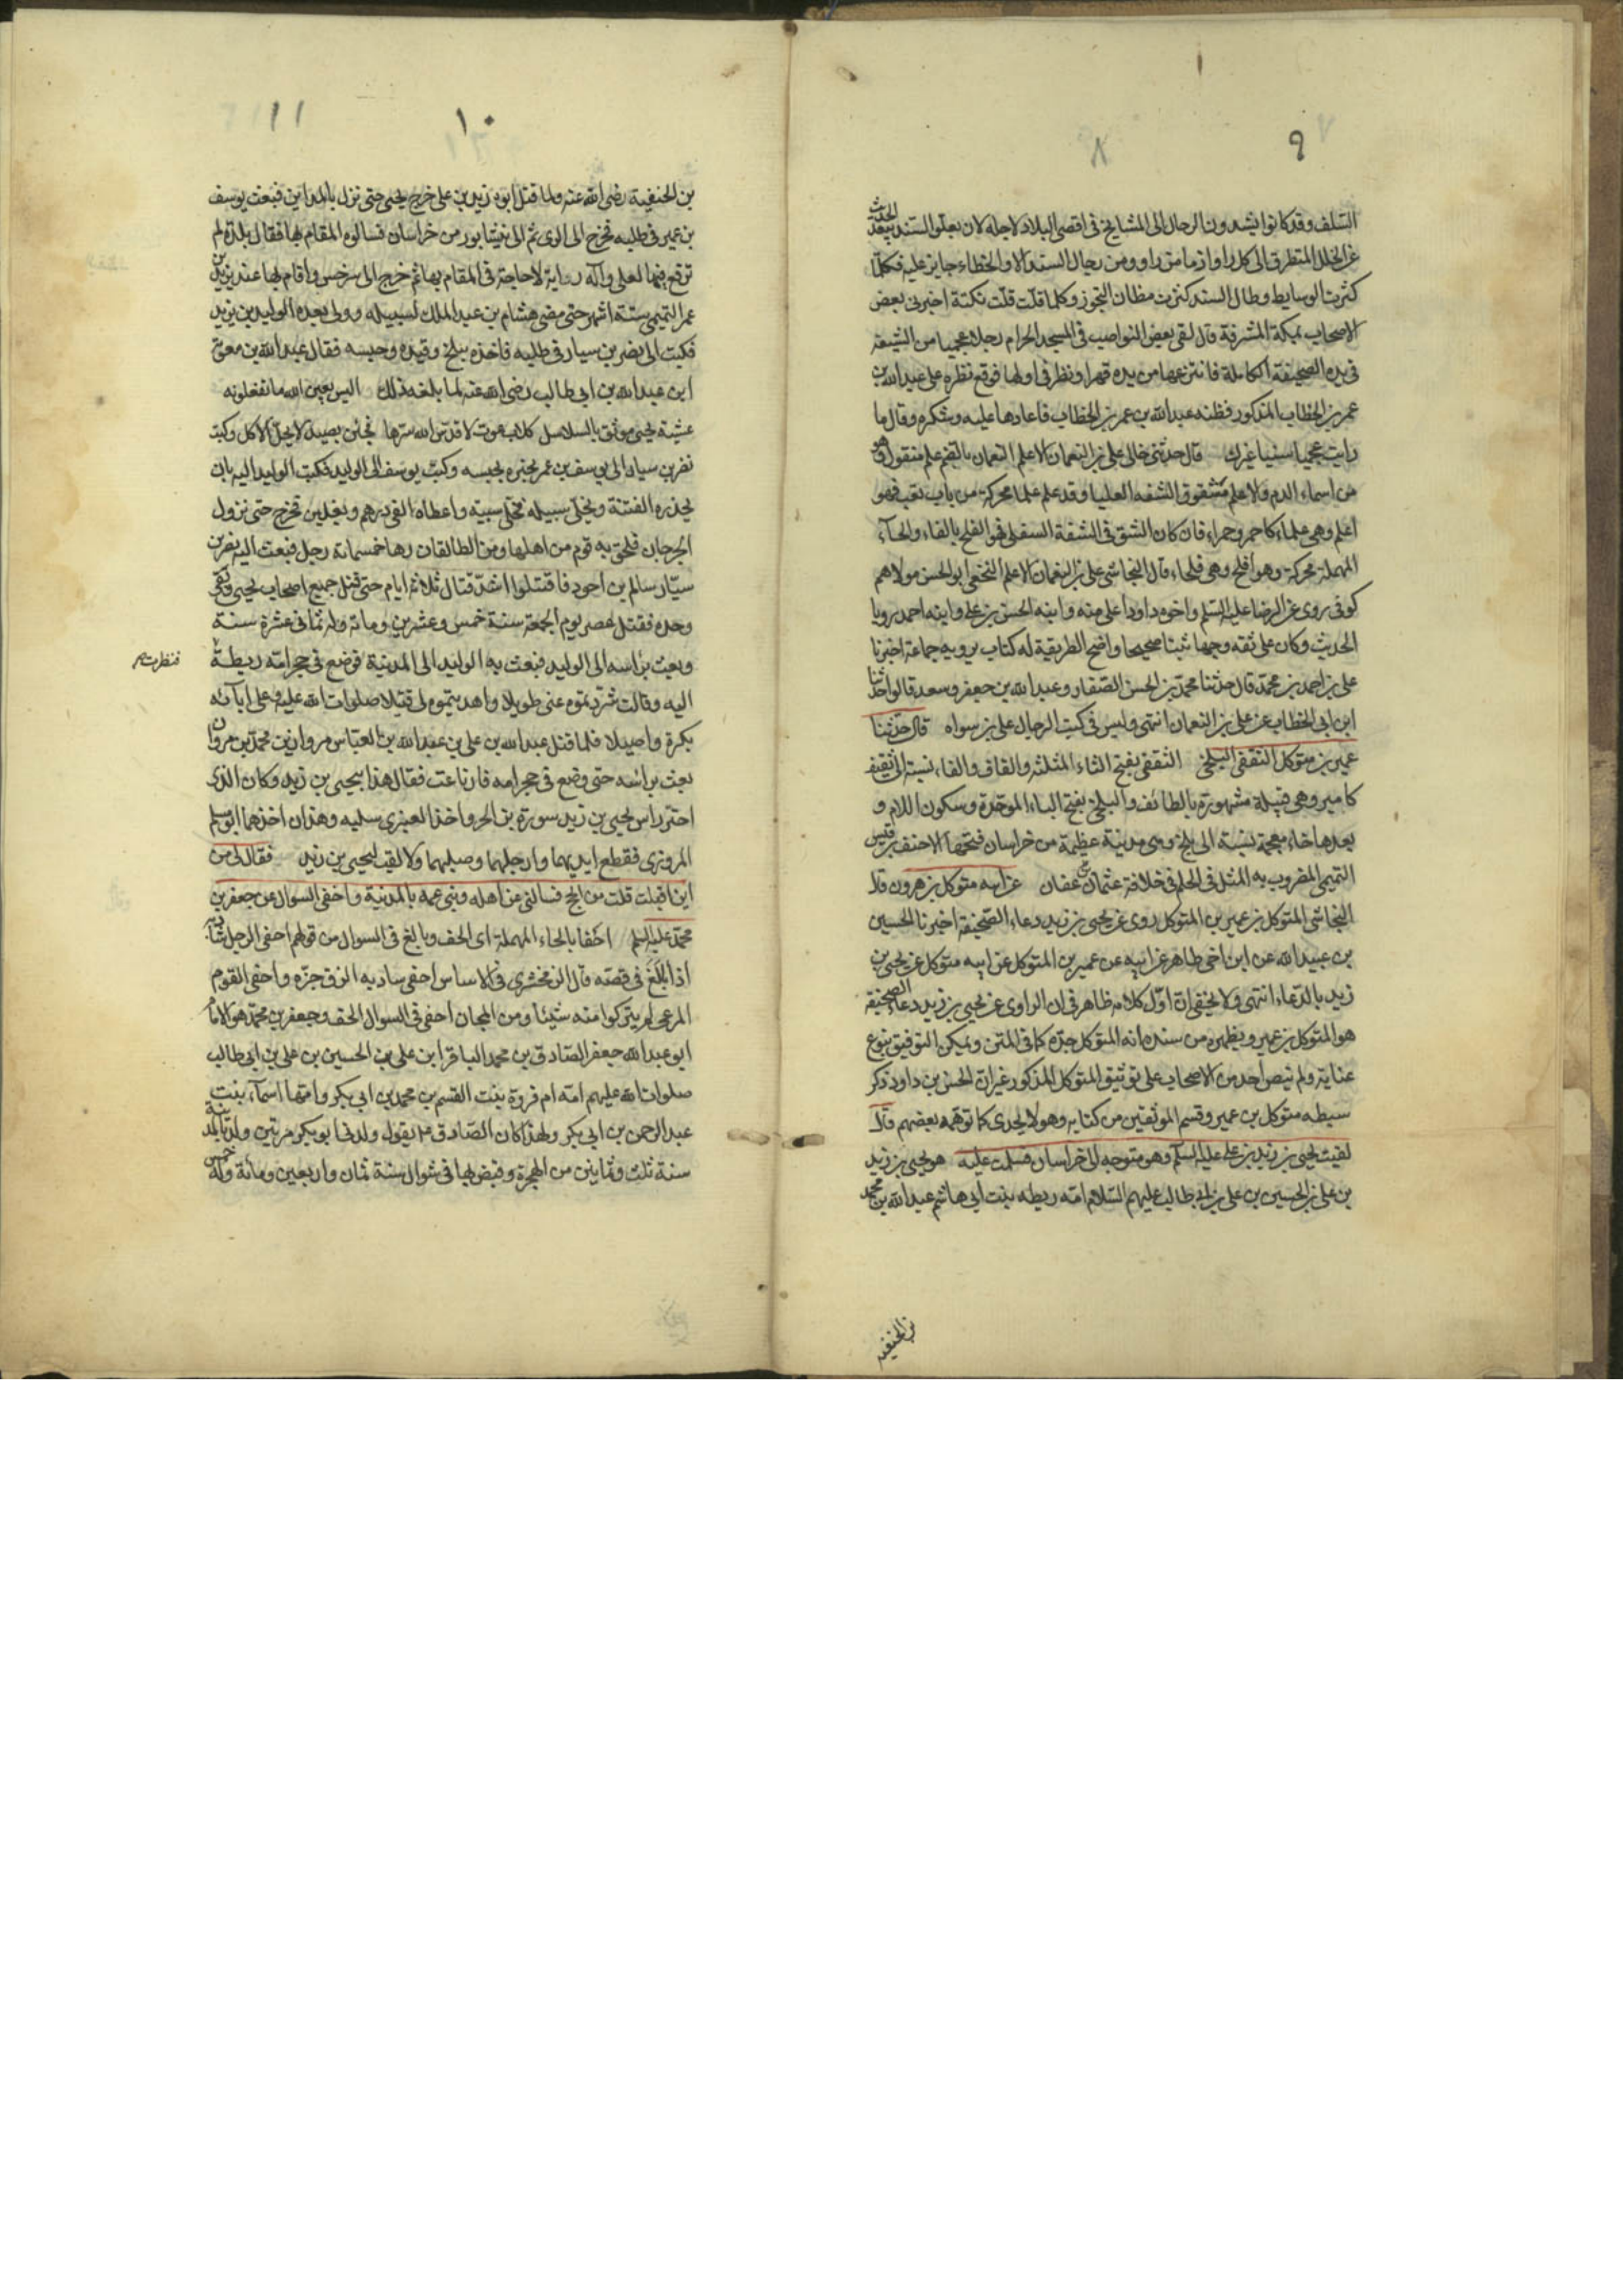 ٩ ٨
السلف وقد كانوا يشدون الرحال الى المشايخ فى اقصى البلاد لاجله لان بعلو السند يبعد الحديث
عن الخلل المتطرق الى كل راو اذ ما من راو ومن رجال السند الا والخطاء جايز عليه فكلما
كثرت الوسايط وطال السند كثرت مظان التجوز وكلما قلت قلت نكتة اخبرنى بعض
الاصحاب بمكة المشرفة قال لقى بعض النواصب فى المسجد الحرام رجلا عجميا من الشيعة
فى يده الصحيفة الكاملة فانتزعها من يده قهرا ونظر فى اولها فوقع نظره على عبد الله بن
عمر بن الخطاب المذكور فظنه عبد الله بن عمر بن الخطاب فاعادها عليه وشكره وقال ما
رايت عجميا سنيا غيرك قال حدثنى خالى على بن النعمان الاعلم النعمان بالضم علم منقول
من اسماء الدم والاعلم مشقوق الشفة العليا وقد علم علما محركة من باب تعب فهو
اعلم وهى علماء كاحمر وحمراء فان كان الشق فى الشفة السفلى فهو الفلح بالفاء والحاء
المهملة محركة وهو افلح وهى فلحاء قال النجاشى على بن النعمان الاعلم النخعى ابو الحسن مولاهم
كوفى روى عن الرضا عليه السلم واخوه داود اعلى منه وابنه الحسن بن على وابنه احمد رويا
الحديث وكان على ثقه وجها ثبتا صحيحا واضح الطريقة له كتاب يرويه جماعة اخبرنا
على بن احمد بن محمد قال حدثنا محمد بن الحسن الصفار وعبد الله بن جعفر وسعد قالوا حدثنا
ابن ابى الخطاب عن على بن النعمان انتهى وليس فى كتب الرجال على بن سواه قال حدثنا
عمير بن متوكل الثقفى البلخى الثقفى بفتح الثاء المثلثه والقاف والفاء نسبته الى ثقيف
كامير وهى قبيلة مشهورة بالطائف والبلخى بفتح الباء الموحدة وسكون اللام و
بعدها خاء معجمة نسبة الى بلخ وهى مدينة عظيمة من خراسان فتحها الاحنف بن قيس
التميمى المضروب به المثل فى الحلم فى خلافة عثمان بن عفان عن ابيه متوكل بن هرون قال
النجاشى المتوكل بن عمير بن المتوكل روى عن يحيى بن زيد دعاء الصحيفة اخبرنا الحسين
بن عبيد الله عن ابن اخى طاهر عن ابيه عن عمير بن المتوكل عن ابيه متوكل عن يحيى بن
زيد بالدعاء انتهى ولا يخفى ان اول كلامه ظاهر فى ان الراوى عن يحيى بن زيد دعاء الصحيفة
هو المتوكل بن عمير ويظهر من سنده انه المتوكل جده كما فى المتن ويمكن التوفيق بنوع
عناية ولم ينص احد من الاصحاب على توثيق المتوكل المذكور غير ان الحسن بن داود ذكر
سبطه متوكل بن عمير وقسم الموثقين من كتابه وهو لا يجدى كما توهمه بعضهم قال
لقيت يحيى بن زيد بن على عليه السلم وهو متوجه الى خراسان فسلمت عليه هو يحيى بن زيد
بن على بن الحسين بن على بن ابى طالب عليهم السلام امه ريطه بنت ابى هاشم عبد الله بن محمد
بن الحنفيه
١٠ ١١
بن الحنفية رضى الله عنه ولما قتل ابوه زيد بن على خرج يحيى حتى نزل بالمداين فبعث يوسف
بن عمير فى طلبه فخرج الى الرى ثم الى نيشابور من خراسان فسالوه المقام بها فقال بلدة لم
ترفع فيها لعلى وآله راية لا حاجة فى المقام بها ثم خرج الى سرخس واقام بها عند يزيد بن
عمر التميمى ستة اشهر حتى مضى هشام بن عبد الملك لسبيله وولى بعده الوليد بن يزيد
فكتب الى نصر بن سيار فى طلبه فاخذه ببلخ وقيده وحبسه فقال عبد الله بن معوية
ابن عبد الله بن ابى طالب رضى الله عنه لما بلغه ذلك اليس بعين الله ما تفعلونه
عشية يحيى موثق بالسلاسل كلاب عوت لا قدس الله سرها فجئن بصيد لا يحل لآكل وكتب
نصر بن سيار الى يوسف بن عمر يخبره بحبسه وكتب يوسف الى الوليد فكتب الوليد اليه بان
يحذره الفتنة ويخلى سبيله فخلى سبيله واعطاه الفى درهم وبغلين فخرج حتى نزول
الجرجان فلحق به قوم من اهلها ومن الطالقان رهاء خمسمائة رجل فبعث اليه نصر بن
سيار سالم بن احود فاقتتلوا اشد قتال ثلاثة ايام حتى قتل جميع اصحاب يحيى وبقى
وحده فقتل عصر يوم الجمعة سنة خمس وعشرين ومائة وله ثمانى عشرة سنة
وبعث براسه الى الوليد فبعث به الوليد الى المدينة فوضع فى حجر امه ريطة
فنظرت م
اليه وقالت شردتموه عنى طويلا واهديتموه لى قتيلا صلوات الله عليه وعلى ابآئه
بكرة واصيلا فلما قتل عبد الله بن على بن عبد الله بن العباس مروان بن محمد بن مروان
بعث براسه حتى وضع فى حجر امه فارتاعت فقال هذا بيحيى بن زيد وكان الذى
احتز راس يحيى بن زيد سورة بن الحر واخذ العنبرى سلبه وهذان اخذهما ابو مسلم
المروزى فقطع ايديهما وارجلهما وصلبهما ولا لقب ليحيى بن زيد فقال لى من
اين اقبلت قلت من الحج فسالنى عن اهله وبنى عمه بالمدنية واحفى السوال عن جعفر بن
محمد عليه السلم احفا بالحاء المهملة اى الحف وبالغ فى السوال من قولهم احفى الرجل شاربه
اذا بالغ فى قصه قال الزمخشرى فى الاساس احفى شاربه الزق جزه واحفى القوم
المرعى لم يتركوا منه شيئا ومن المجان احفى فى السوال الحف وجعفر بن محمد هو الامام
ابو عبد الله جعفر الصادق بن محمد الباقر ابن على بن الحسين بن على بن ابى طالب
صلوات الله عليهم امه ام فروة بنت القسم بن محمد بن ابى بكر وامها اسمآء بنت
عبد الرحمن بن ابى بكر ولهذا كان الصادق ع يقول ولدنى ابو بكر مرتين ولد بالمدينة
سنة ثلث وثمانين من الهجرة وقبض بها فى شوال سنة ثمان واربعين ومائة وله خمس